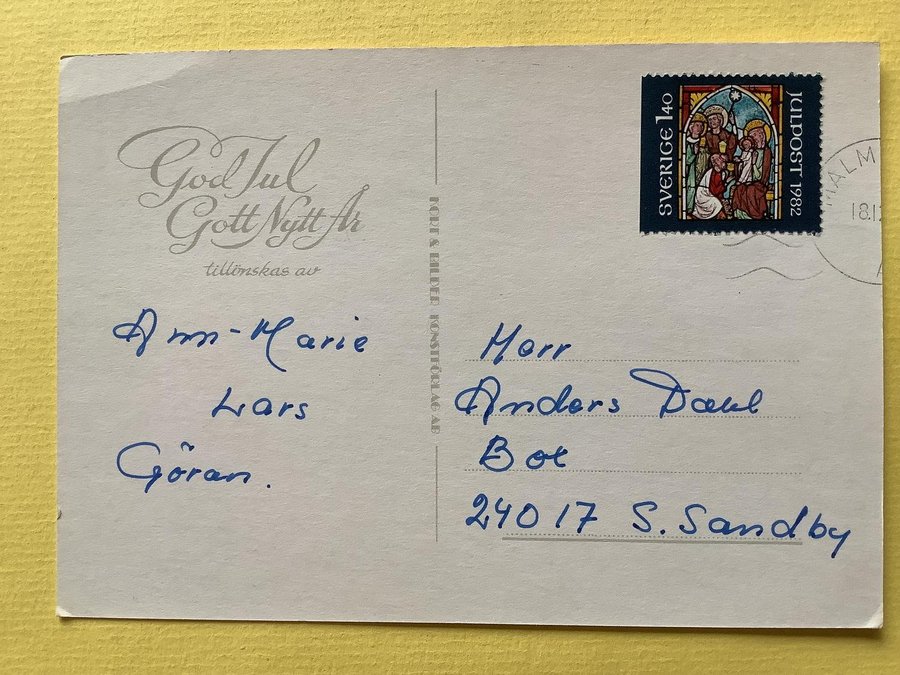 God Jul
Gott Nytt År
tillönskas av
Ann-Marie
Lars
Göran.
KONSTFÖRLAG AB
SVERIGE 140
JULPOST 1982
MALM
18.12
Herr
Anders Dahl
Box
24017 S. Sandby